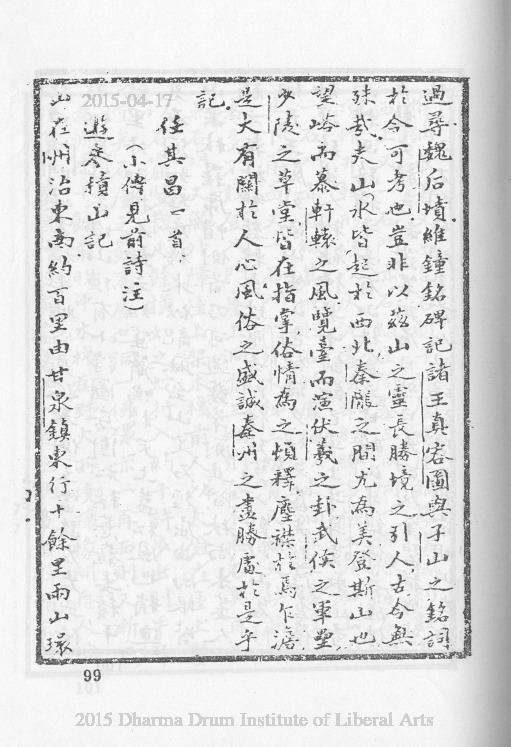 過尋魏后墳維鐘銘碑記諸王真容圖與子山之銘詞
於今可考也豈非以茲山之靈長勝境之引人古今無
殊哉夫山水皆起於西北秦隴之間尤為美登斯山也
望峪而慕軒轅之風覽臺而演伏羲之卦武侯之軍壘
少陵之草堂皆在指掌俗情為之頓釋塵襟於焉乍澹
是大有關於人心風俗之盛誠秦州之盡勝處於是乎
記
任其昌一首
(小傳見前詩注)
遊麥積山記
山在州治東南約百里由甘泉鎮東行十餘里兩山環
99
2015-04-17
2015 Dharma Drum Institute of Liberal Arts